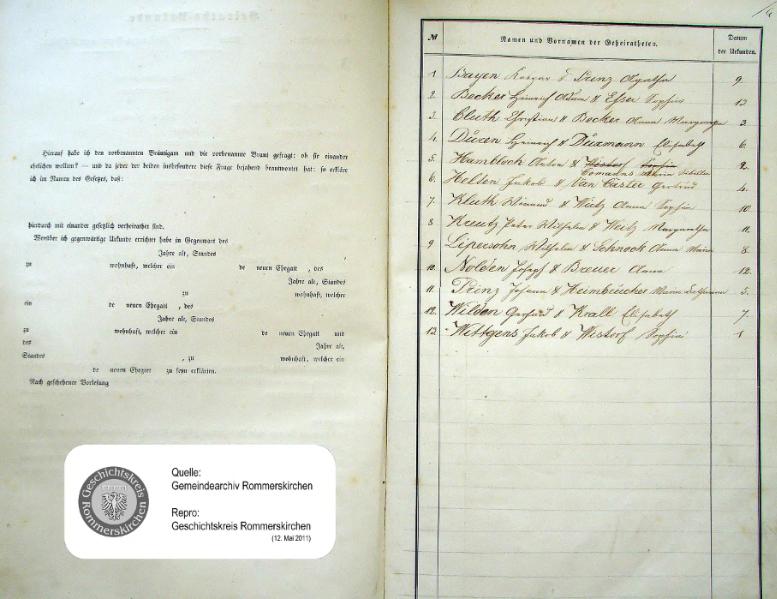 Hierauf habe ich den vorbenannten Bräutigam und die vorbenannte Braut gefragt: ob sie einander
ehelichen wollen? — und da jeder der beiden insbesondere diese Frage bejahend beantwortet hat: so erkläre
ich im Namen des Gesetzes, daß:
hierdurch mit einander gesetzlich verheirathet sind.
Worüber ich gegenwärtige Urkunde errichtet habe in Gegenwart des
Jahre alt, Standes
zu wohnhaft, welcher ein de neuen Ehegatt , des
Jahre alt, Standes
zu wohnhaft, welcher
ein de neuen Ehegatt , des
Jahre alt, Standes
zu wohnhaft, welcher ein de neuen Ehegatt und
des Jahre alt,
Standes , zu wohnhaft, welcher ein
de neuen Ehegatt zu sein erklärten.
Nach geschehener Vorlesung
Geschichtskreis Rommerskirchen
Quelle:
Gemeindearchiv Rommerskirchen
Repro:
Geschichtskreis Rommerskirchen
(12. Mai 2011)
№ Namen und Vornamen der Geheiratheten. Datum der Urkunden.
1. Bayen Kaspar & Prinz Agatha 9
2. Becker Heinrich Adam & Esser Sophia 13
3. Cluth Christian & Becker Anna Margaretha 3
4. Düren Heinrich & Düxmann Elisabeth 6
5. Humbloch Anton & Wistorf Sophia 2
Comanns Maria Sibilla
6. Helden Jakob & Van Caster Gertrud 4
7. Kluth & Weitz Anna Sophia 10
8. Kreutz Peter Wilhelm & Weitz Margaretha 11
9. Lipersohn Wilhelm & Schnock Anna Maria 8
10. Nolden Joseph & Breuer Anna 12
11. Prinz Johann & Heimbücher Maria 5
12. Wilden Gerhard & Krall Elisabeth 7
13. Wettgens Jakob & Wistorf Sophia 1